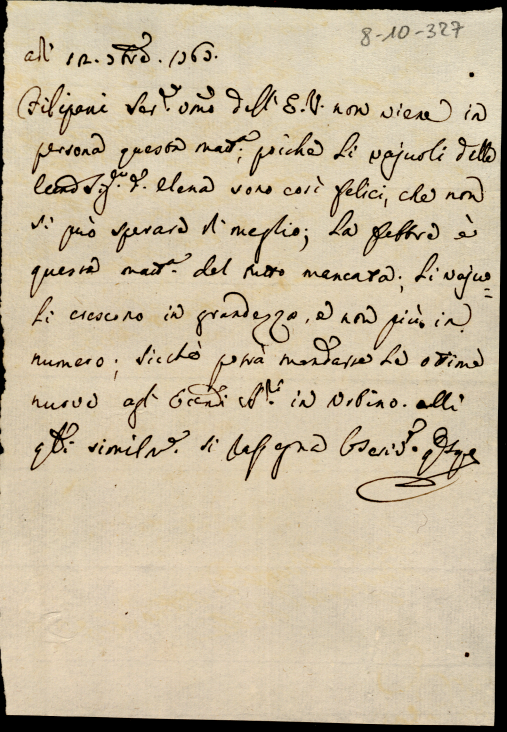 8-10-327
adì 12. 1763.
Filipeni Ser.e umo dell' E.V. non viene in
persona questa matt.a; poiche li vajuoli della
Sig.ra D. Elena sono così felici, che non
si può sperare di meglio; La febbre è
questa matt.a del tutto mancata; Li vajuo=
li crescono in grandezza, e non più in
numero; sicchè potrà mandarse la ottima
nuova agli in Urbino. alli
q.li similm.e si rassegna